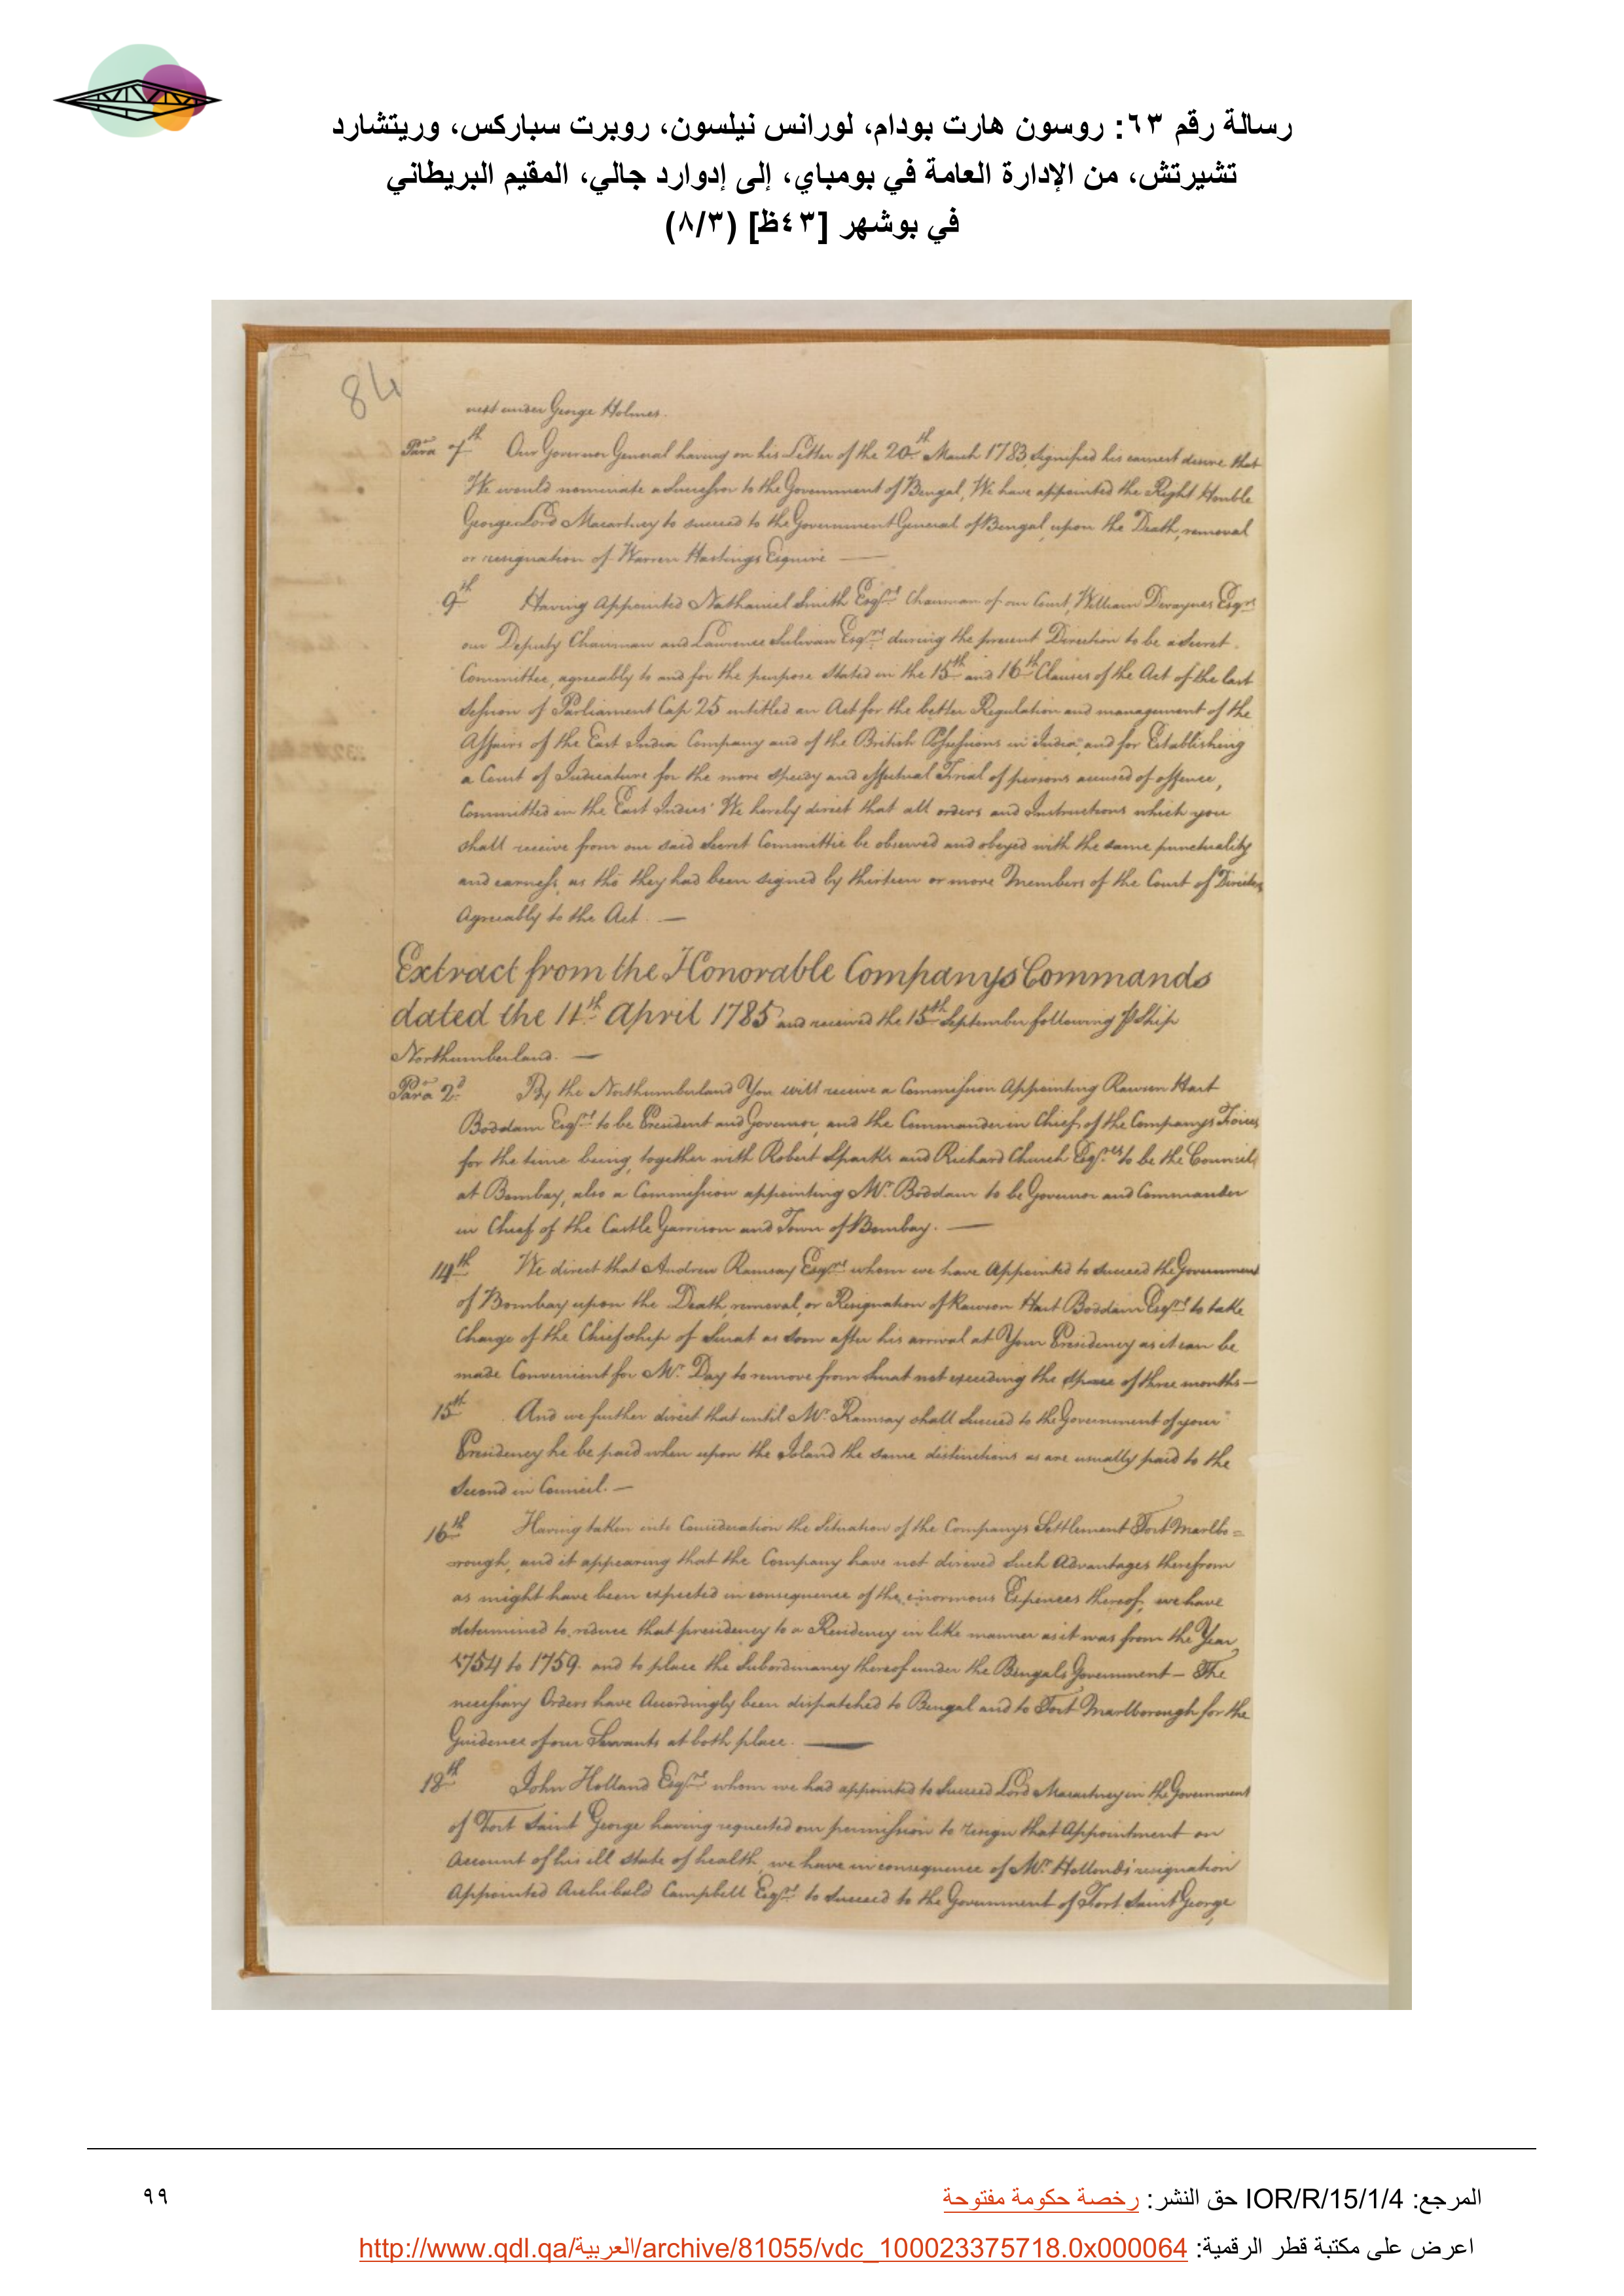 رسالة رقم ٦٣: روسون هارت بودام، لورانس نيلسون، روبرت سباركس، وريتشارد
تشيرتش، من الإدارة العامة في بومباي، إلى إدوارد جالي، المقيم البريطاني
في بوشهر [٤٣ظ] (٨/٣)
84
next under George Holmes.
Para 7th Our Governor General having on his Letter of the 20th March 1783, signified his earnest desire that
We would nominate a Successor to the Government of Bengal, We have appointed the Right Honble
George Lord Macartney to succeed to the Government General of Bengal, upon the Death, removal
or resignation of Warren Hastings Esquire —
9th Having Appointed Nathaniel Smith Esqre Chairman of our Court, William Devaynes Esqre
our Deputy Chairman and Laurence Sulivan Esqre during the present Direction to be a Secret
Committee, agreeably to and for the purpose stated in the 15th and 16th Clauses of the Act of the last
Session of Parliament Cap 25 entitled an Act for the better Regulation and management of the
Affairs of the East India Company and of the British Possessions in India, and for Establishing
a Court of Judicature for the more speedy and effectual Trial of persons accused of offence,
Committed in the East Indies' We hereby direct that all orders and Instructions which you
shall receive from our said Secret Committee be observed and obeyed with the same punctuality
and earness, as tho they had been signed by thirteen or more Members of the Court of
Agreeably to the Act. —
Extract from the Honorable Companys Commands
dated the 11th April 1785 and received the 15th September following ⅌ Ship
Northumberland. —
Para 2d By the Northumberland You will receive a Commission Appointing Rawson Hart
Boddam Esqre to be President and Governor, and the Commander in Chief of the Companys Forces
for the time being, together with Robert Sparks and Richard Church Esqres to be the Council
at Bombay, also a Commission appointing Mr Boddam to be Governor and Commander
in Chief of the Castle Garrison and Town of Bombay. —
14th We direct that Andrew Ramsay Esqre whom we have Appointed to succeed the Government
of Bombay upon the Death, removal, or Resignation of Rawson Hart Boddam Esqre to take
Charge of the Chiefship of Surat as soon after his arrival at Your Presidency as it can be
made Convenient for Mr Day to remove from Surat not exceeding the space of three months —
15th And we further direct that until Mr Ramsay shall Succeed to the Government of your
Presidency he be paid when upon the Island the same distinctions as are usually paid to the
Second in Council. —
16th Having taken into Consideration the Situation of the Companys Settlement Fort Marlbo=
rough, and it appearing that the Company have not direved Such Advantages therefrom
as might have been expected in consequence of the enormous Expences thereof, we have
determined to reduce that presidency to a Residency in like manner as it was from the Year
1754 to 1759 and to place the Subordinancy thereof under the Bengals Government — The
necessary Orders have Accordingly been dispatched to Bengal and to Fort Marlborough for the
Guidence of our Servants at both place. —
18th John Holland Esqre whom we had appointed to Succeed Lord Macartney in the Government
of Fort Saint George having requested our permission to resign that Appointment on
Account of his ill state of health, we have in consequence of Mr Hollands resignation
Appointed Archibald Campbell Esqre to Succeed to the Government of Fort Saint George,
المرجع: IOR/R/15/1/4 حق النشر: رخصة حكومة مفتوحة
٩٩
اعرض على مكتبة قطر الرقمية: http://www.qdl.qa/العربية/archive/81055/vdc_100023375718.0x000064